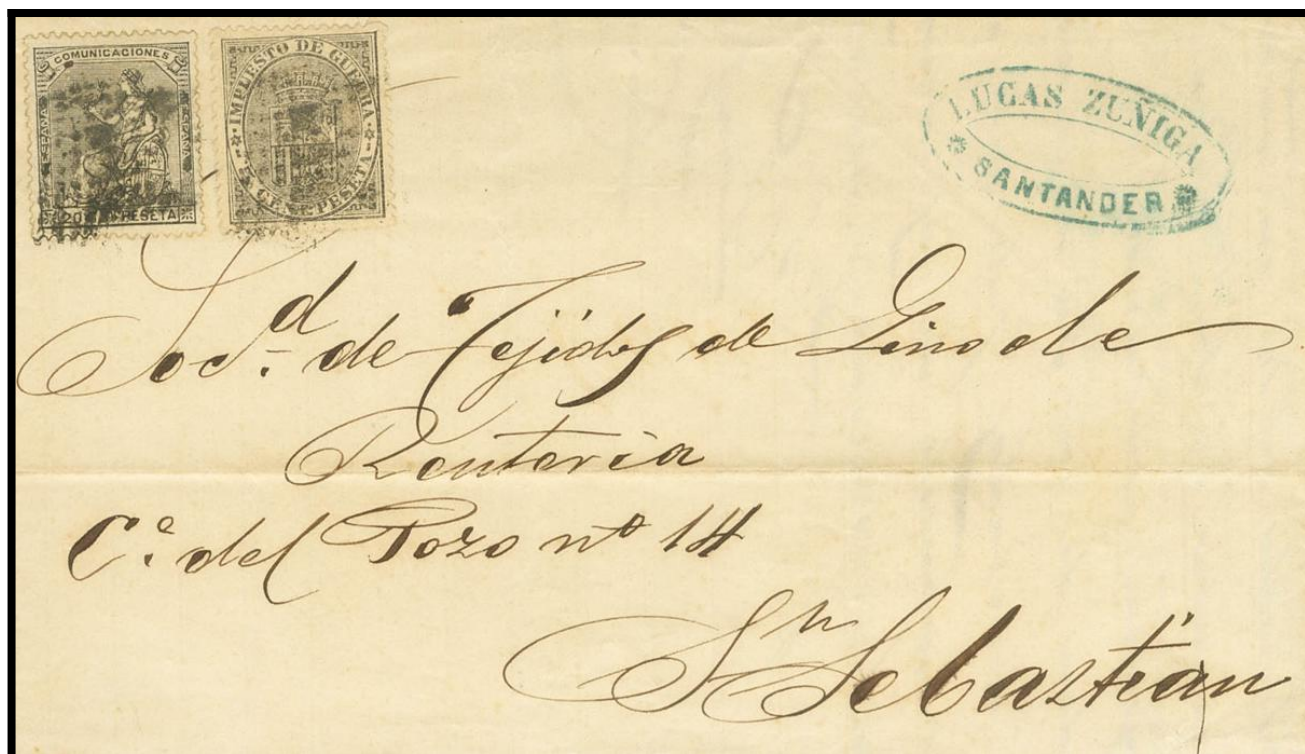 COMUNICACIONES
ESPAÑA
ESPAÑA
20 PESETA
IMPUESTO DE GUERRA
5 CENT. PESETA
LUCAS ZUÑIGA
SANTANDER
Soc.d de Tejidos de Lino de
Renteria
C.e del Pozo nº 14
Sn Sebastián